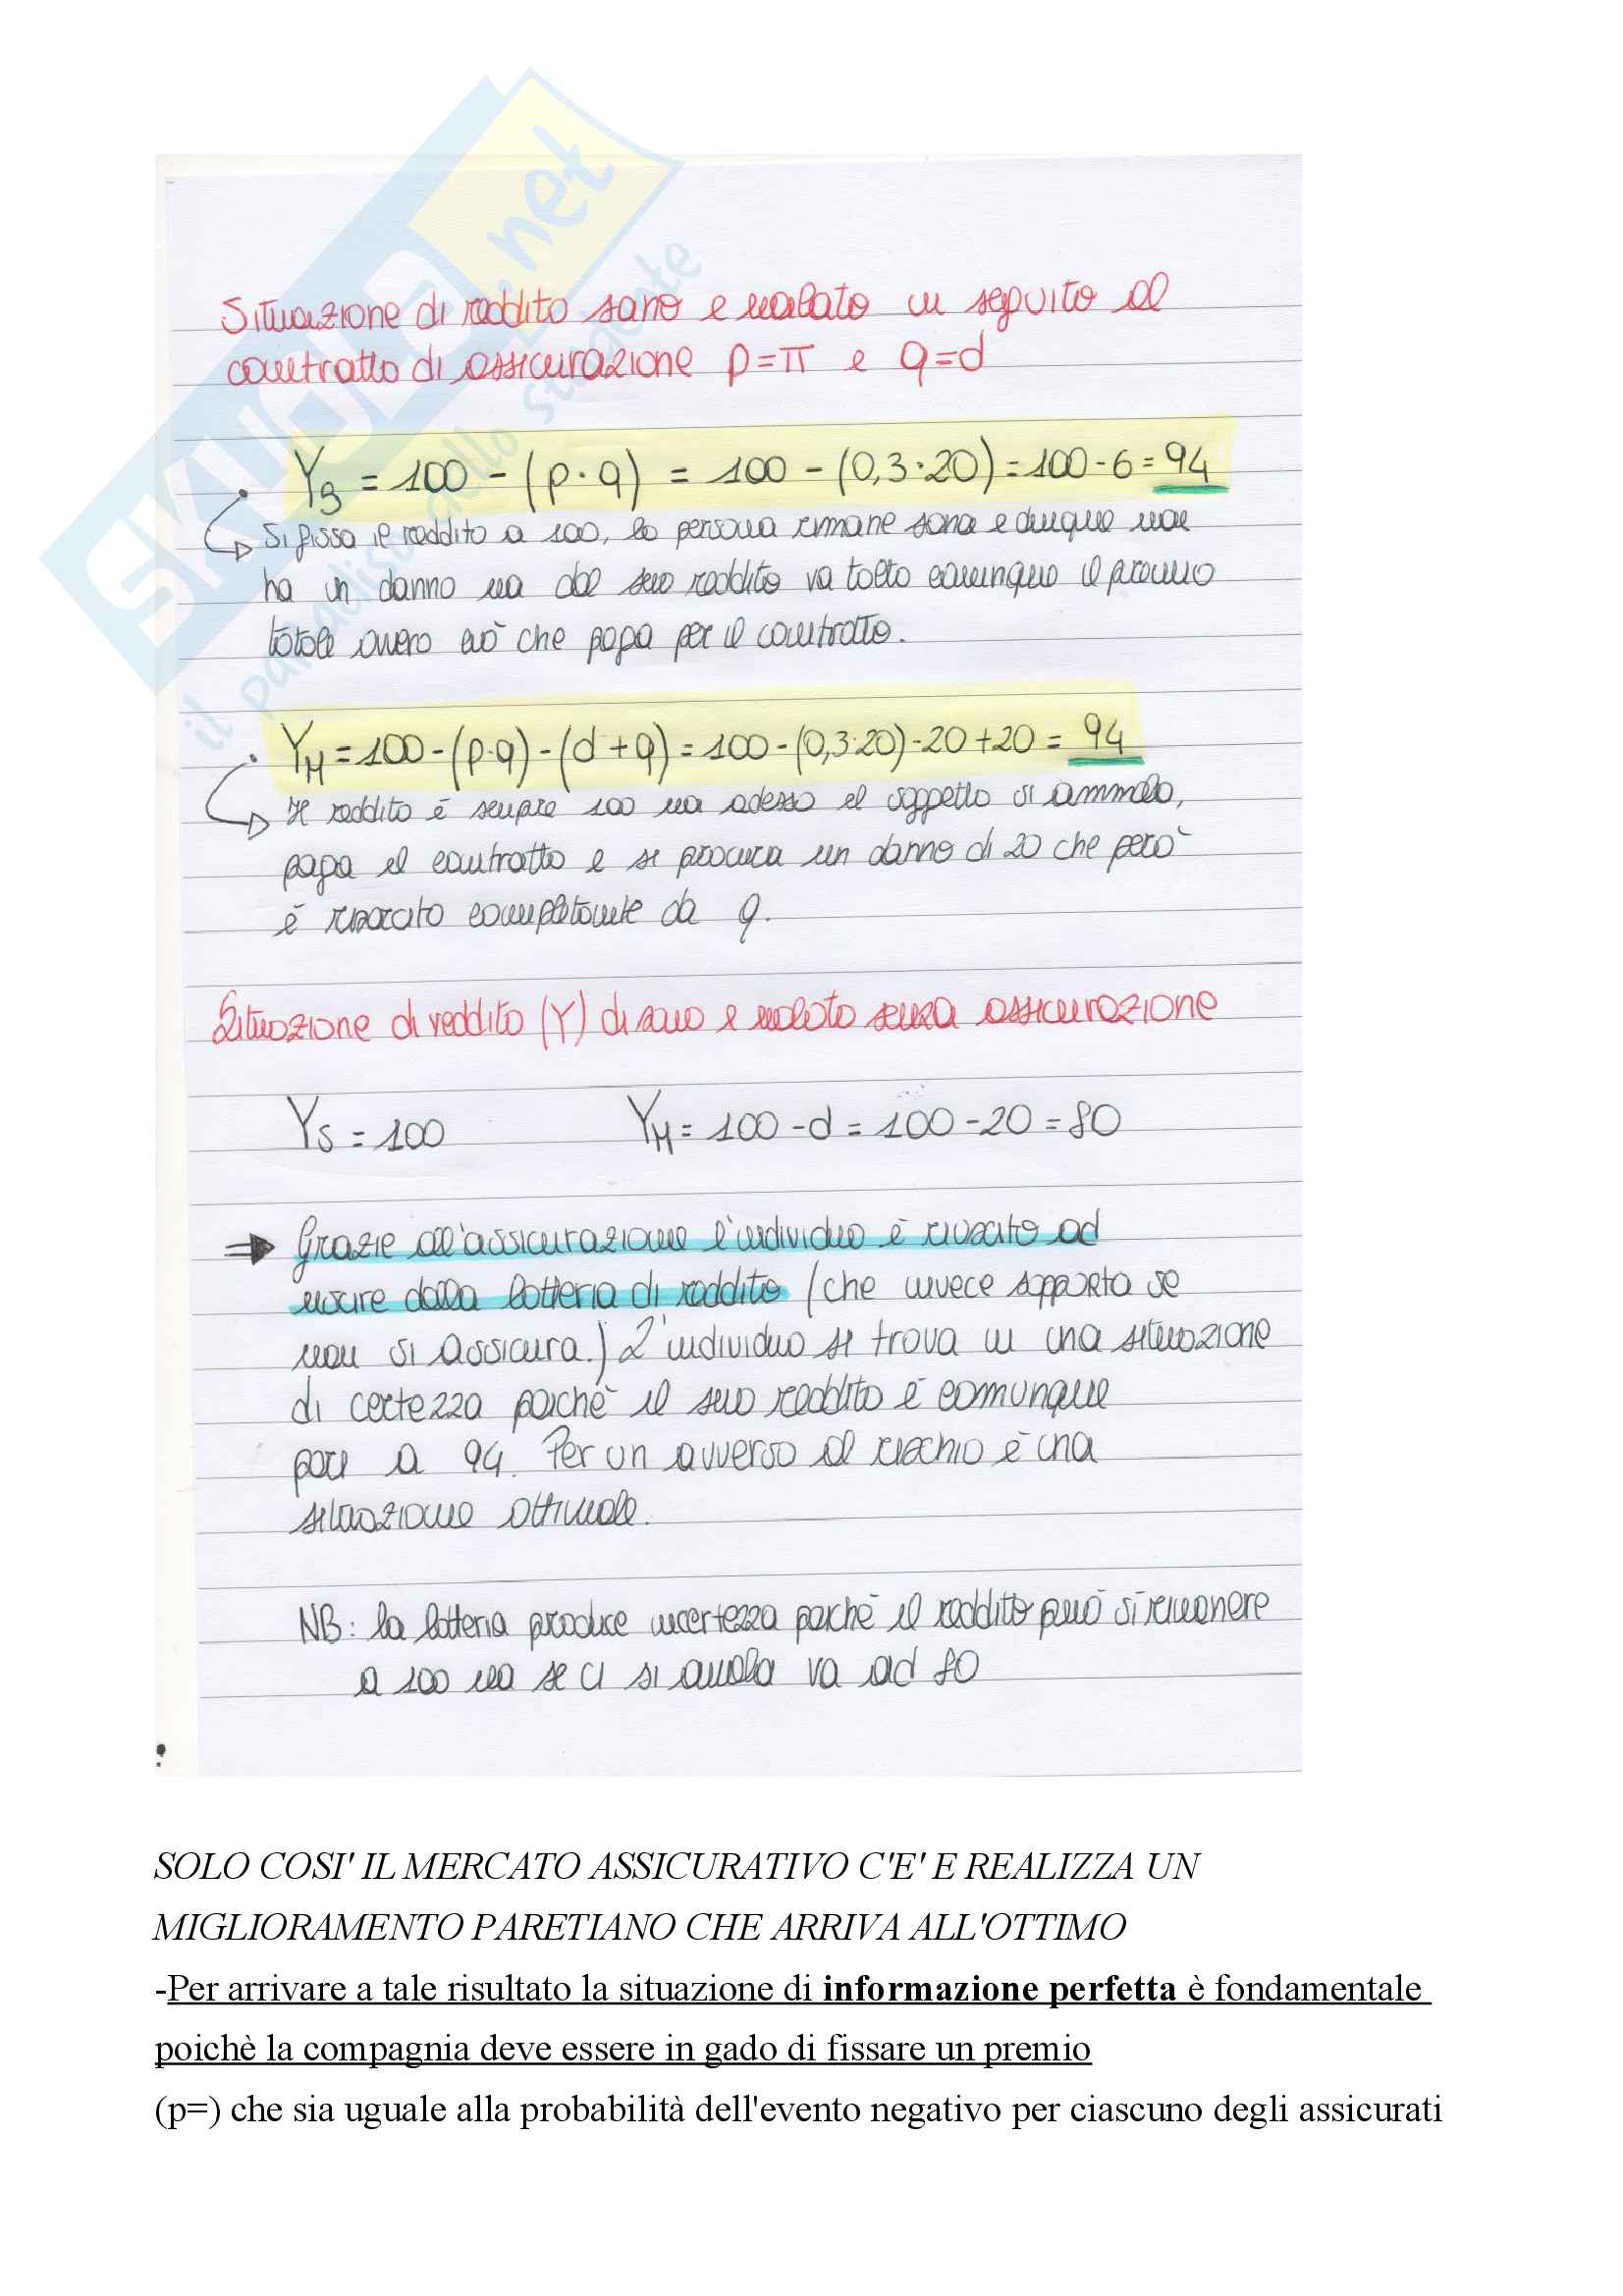 SKUOLA.net
il paradiso dello studente
Situazione di reddito sano e malato in seguito al
contratto di assicurazione p=π e q=d
Ys = 100 - (p·q) = 100 - (0,3·20) = 100-6 = 94
Si fissa il reddito a 100, la persona rimane sana e dunque non
ha un danno ma dal suo reddito va tolto comunque il premio
totale ovvero ciò che paga per il contratto.
YM = 100 - (p·q) - (d+q) = 100 - (0,3·20) - 20 + 20 = 94
Il reddito è sempre 100 ma adesso il soggetto si ammala,
paga il contratto e si procura un danno di 20 che però
è risarcito completamente da q.
Situazione di reddito (Y) di sano e malato senza assicurazione
Ys = 100 YM = 100 - d = 100 - 20 = 80
⇒ Grazie all'assicurazione l'individuo è riuscito ad
uscire dalla lotteria di reddito (che invece sopporta se
non si assicura.) L'individuo si trova in una situazione
di certezza poichè il suo reddito è comunque
pari a 94. Per un avverso al rischio è una
situazione ottimale.
NB: la lotteria produce incertezza poichè il reddito può sì rimanere
a 100 ma se ci si amala va ad 80
SOLO COSI' IL MERCATO ASSICURATIVO C'E' E REALIZZA UN
MIGLIORAMENTO PARETIANO CHE ARRIVA ALL'OTTIMO
-Per arrivare a tale risultato la situazione di informazione perfetta è fondamentale
poichè la compagnia deve essere in gado di fissare un premio
(p=) che sia uguale alla probabilità dell'evento negativo per ciascuno degli assicurati